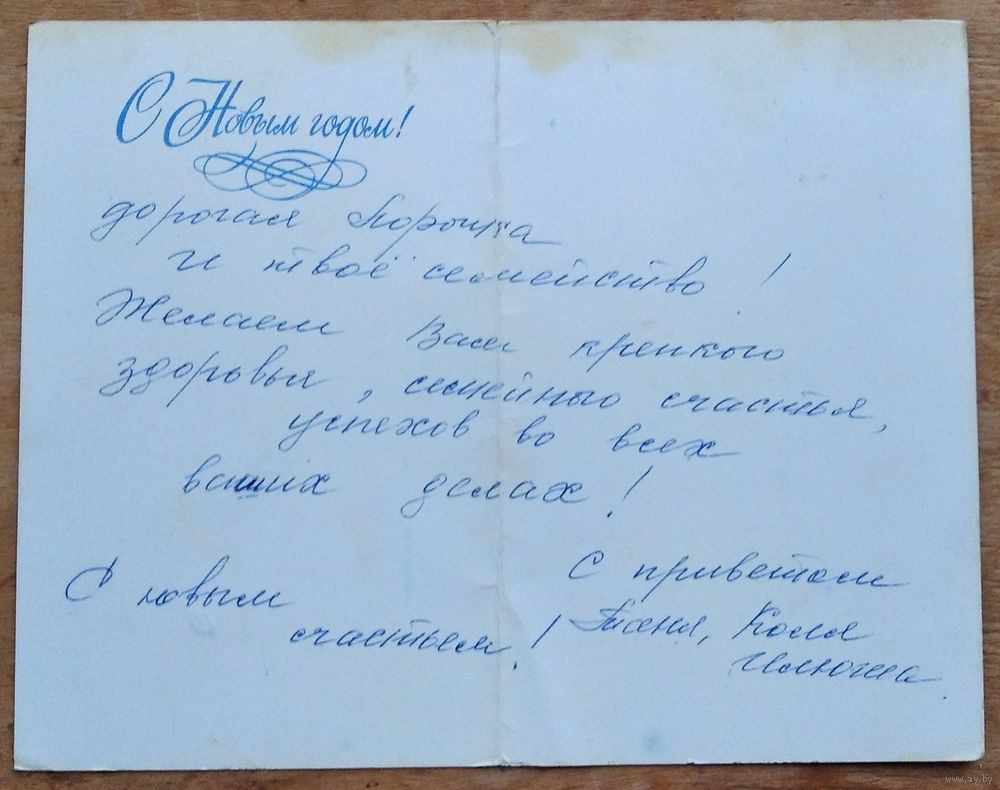 С Новым годом!
дорогая Лорочка
и твоё семейство!
Желаем Вам крепкого
здоровья, семейного счастья,
успехов во всех
ваших делах!
С новым
счастьем!
С приветом
Таня, Коля
Илюша
www.ay.by